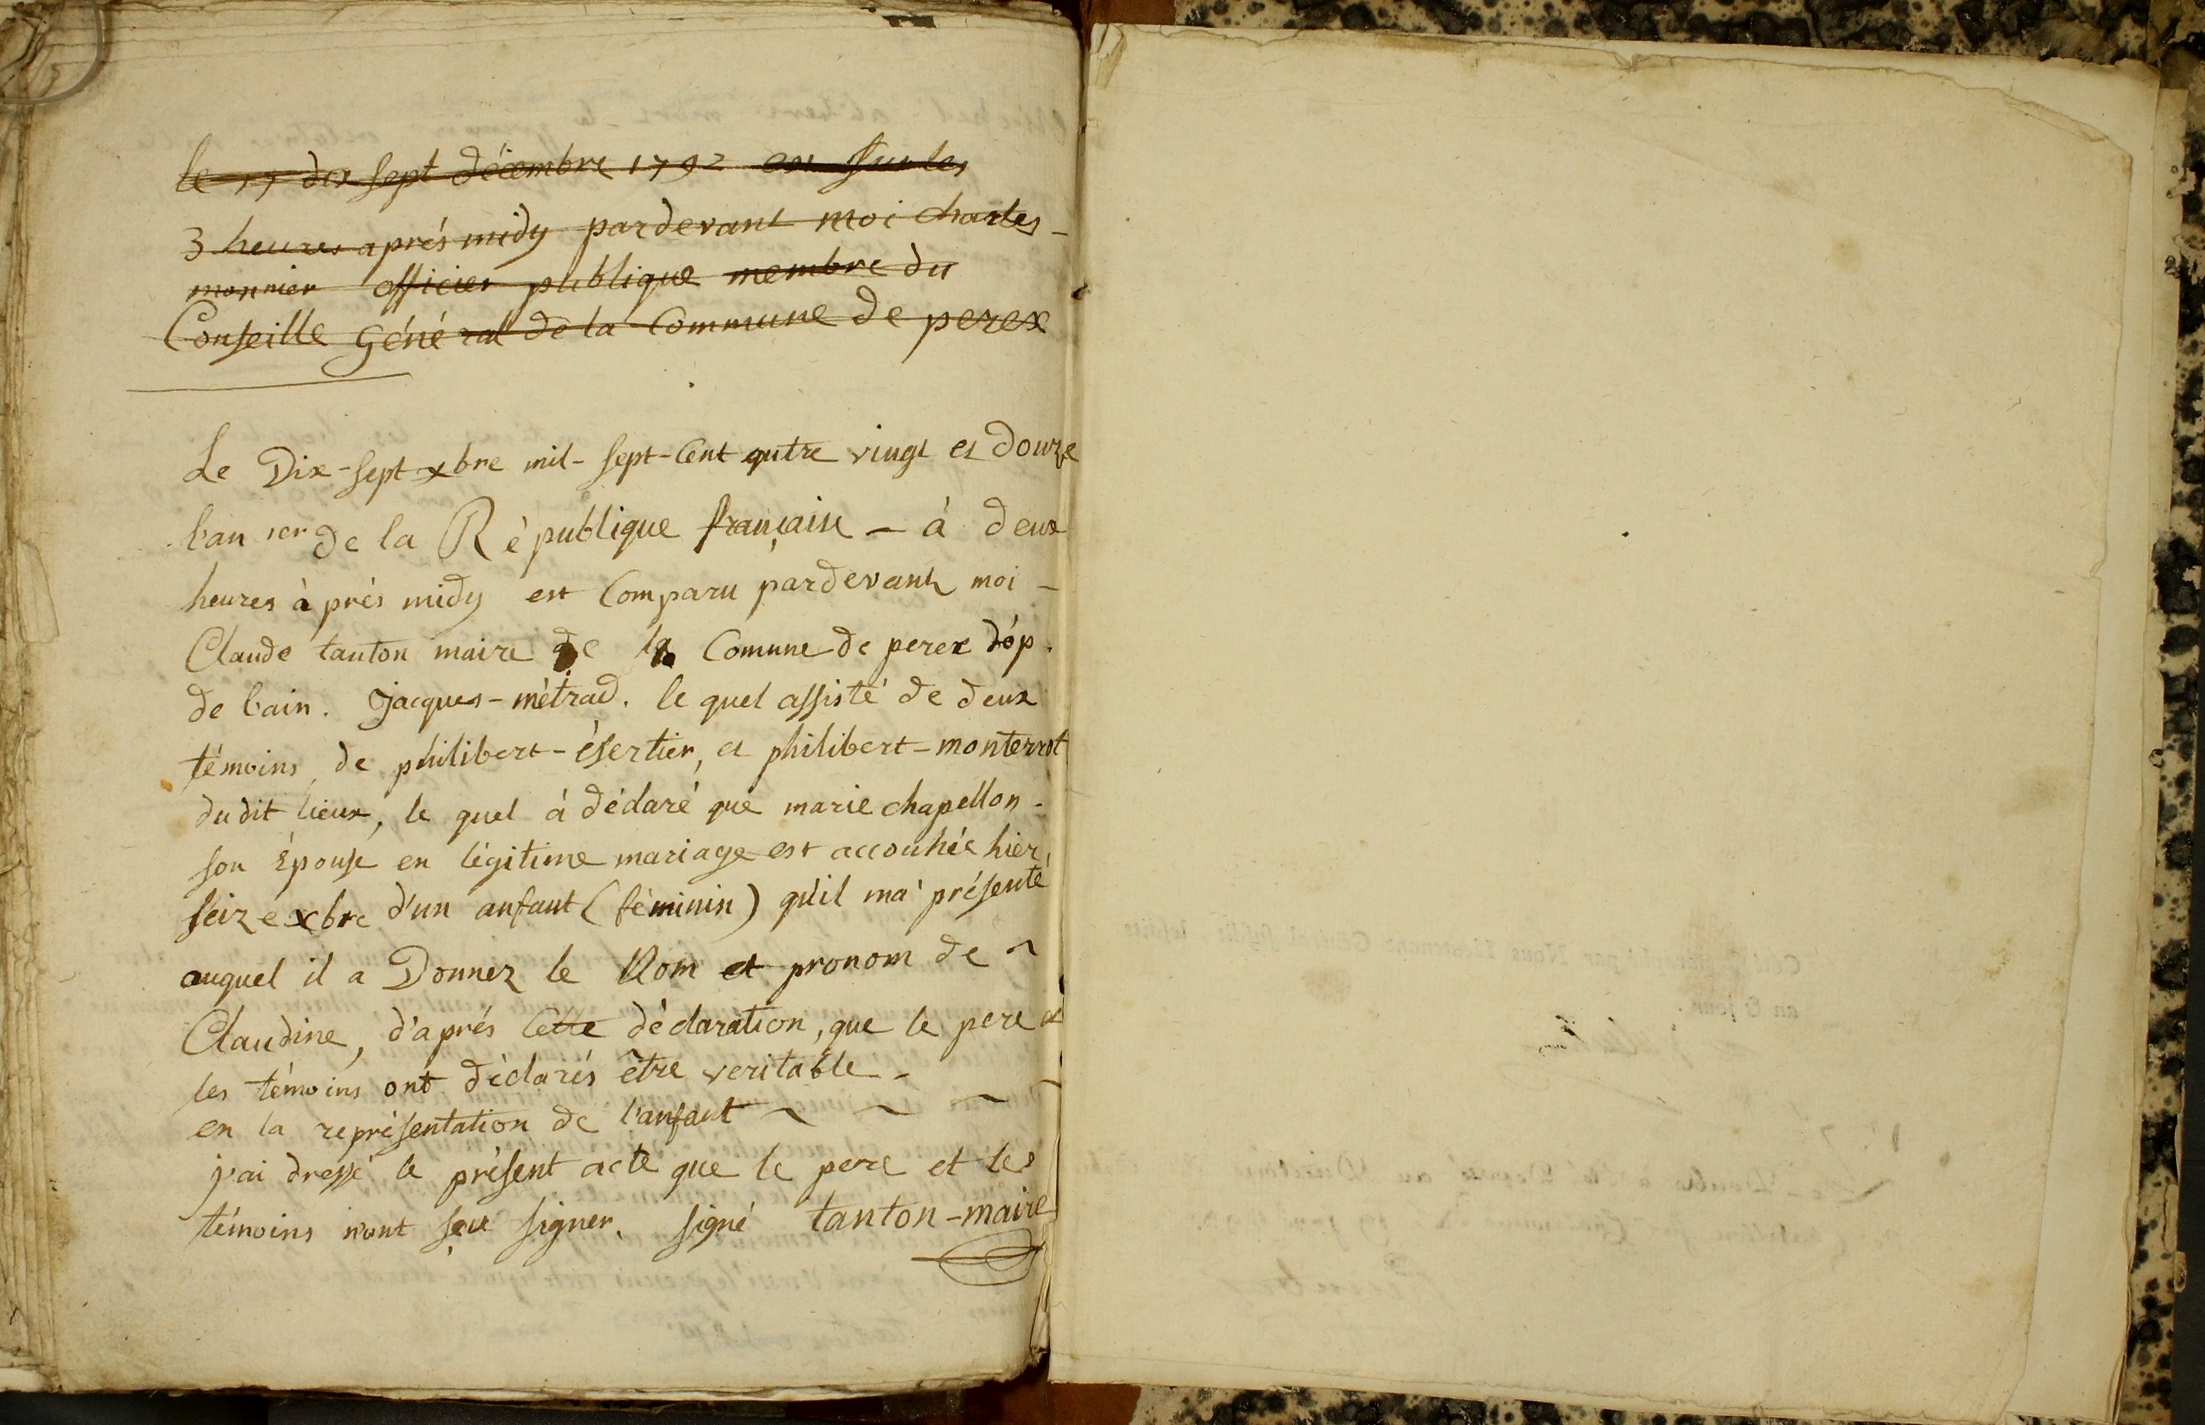 le 17 dix sept décembre 1792 est sur les
3 heures aprés midy pardevant moi charles
monnier officier publique membre du
Conseille Général de la Commune de perex
Le Dix-sept xbre mil-sept-Cent qutre vingt et douze
l'an 1er de la République française - à deux
heures àprés midy est Comparu pardevant moi -
Claude tanton maire de la Comune de perex dép.
de l'ain. Jacques-métrad. le quel assisté de deux
témoins de philibert-ésertier, et philibert-monterrot
du dit lieux, le quel à déclaré que marie chapellon -
son Épouse en légitime mariage est accouhée hier,
seize xbre d'un anfant (féminin) qu'il ma présenté
auquel il a Donnez le Nom et pronom de
Claudine, d'aprés Cette déclaration, que le pere et
les témoins ont déclarés être veritable -
en la représentation de l'anfant
j'ai dressé le présent acte que le pere et les
témoins n'ont seu signer. signé tanton-maire